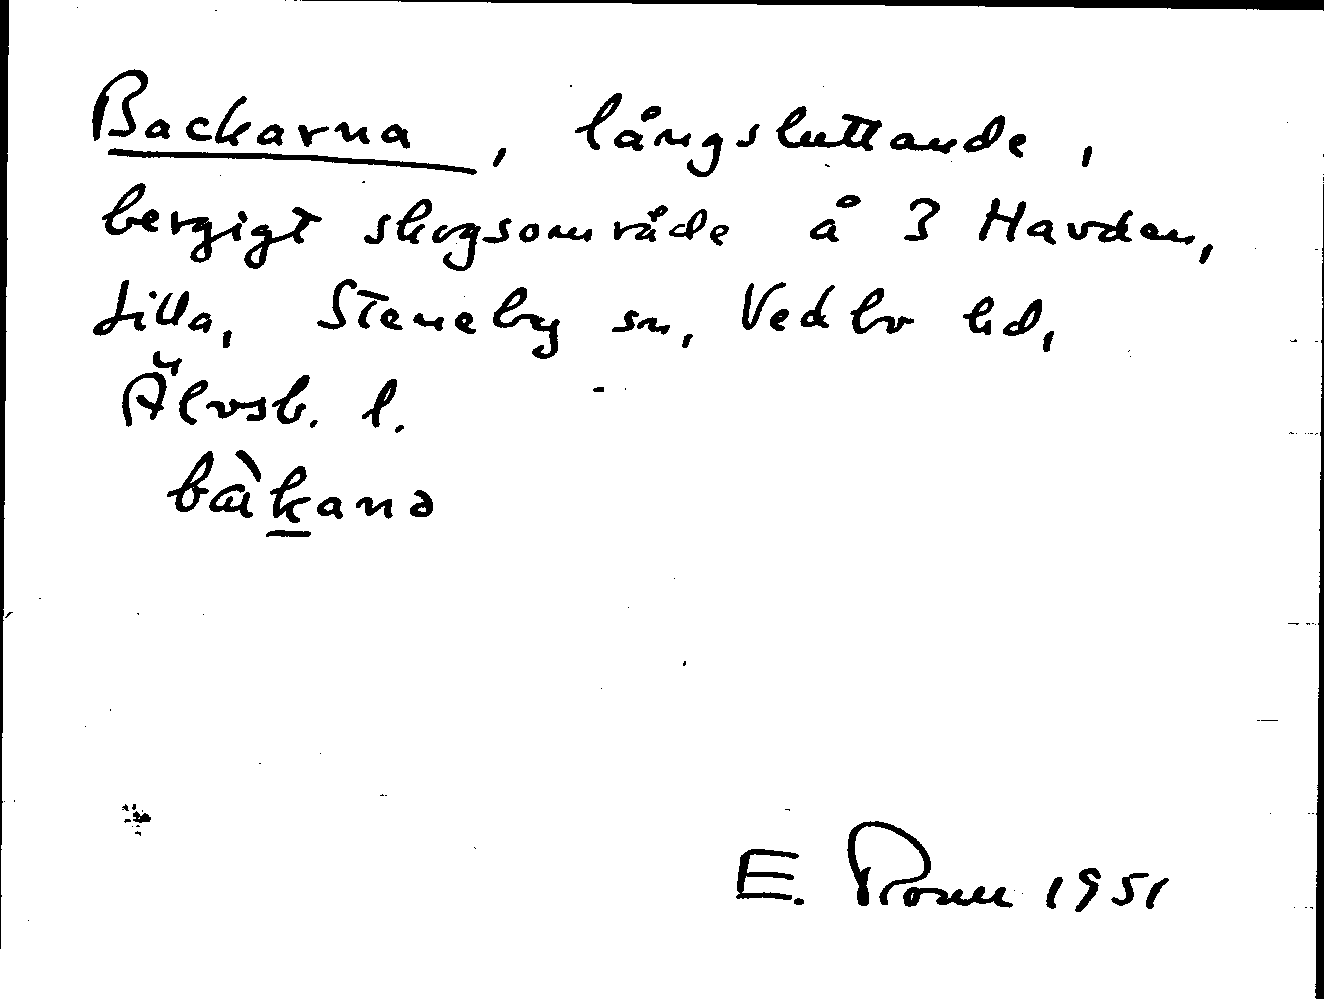 Backarna, långsluttande,
bergigt skogsområde å 3 Havden,
Lilla, Steneby sn, Vedbo hd,
Älvsb. l.
bàkanə
E. Rosell 1951